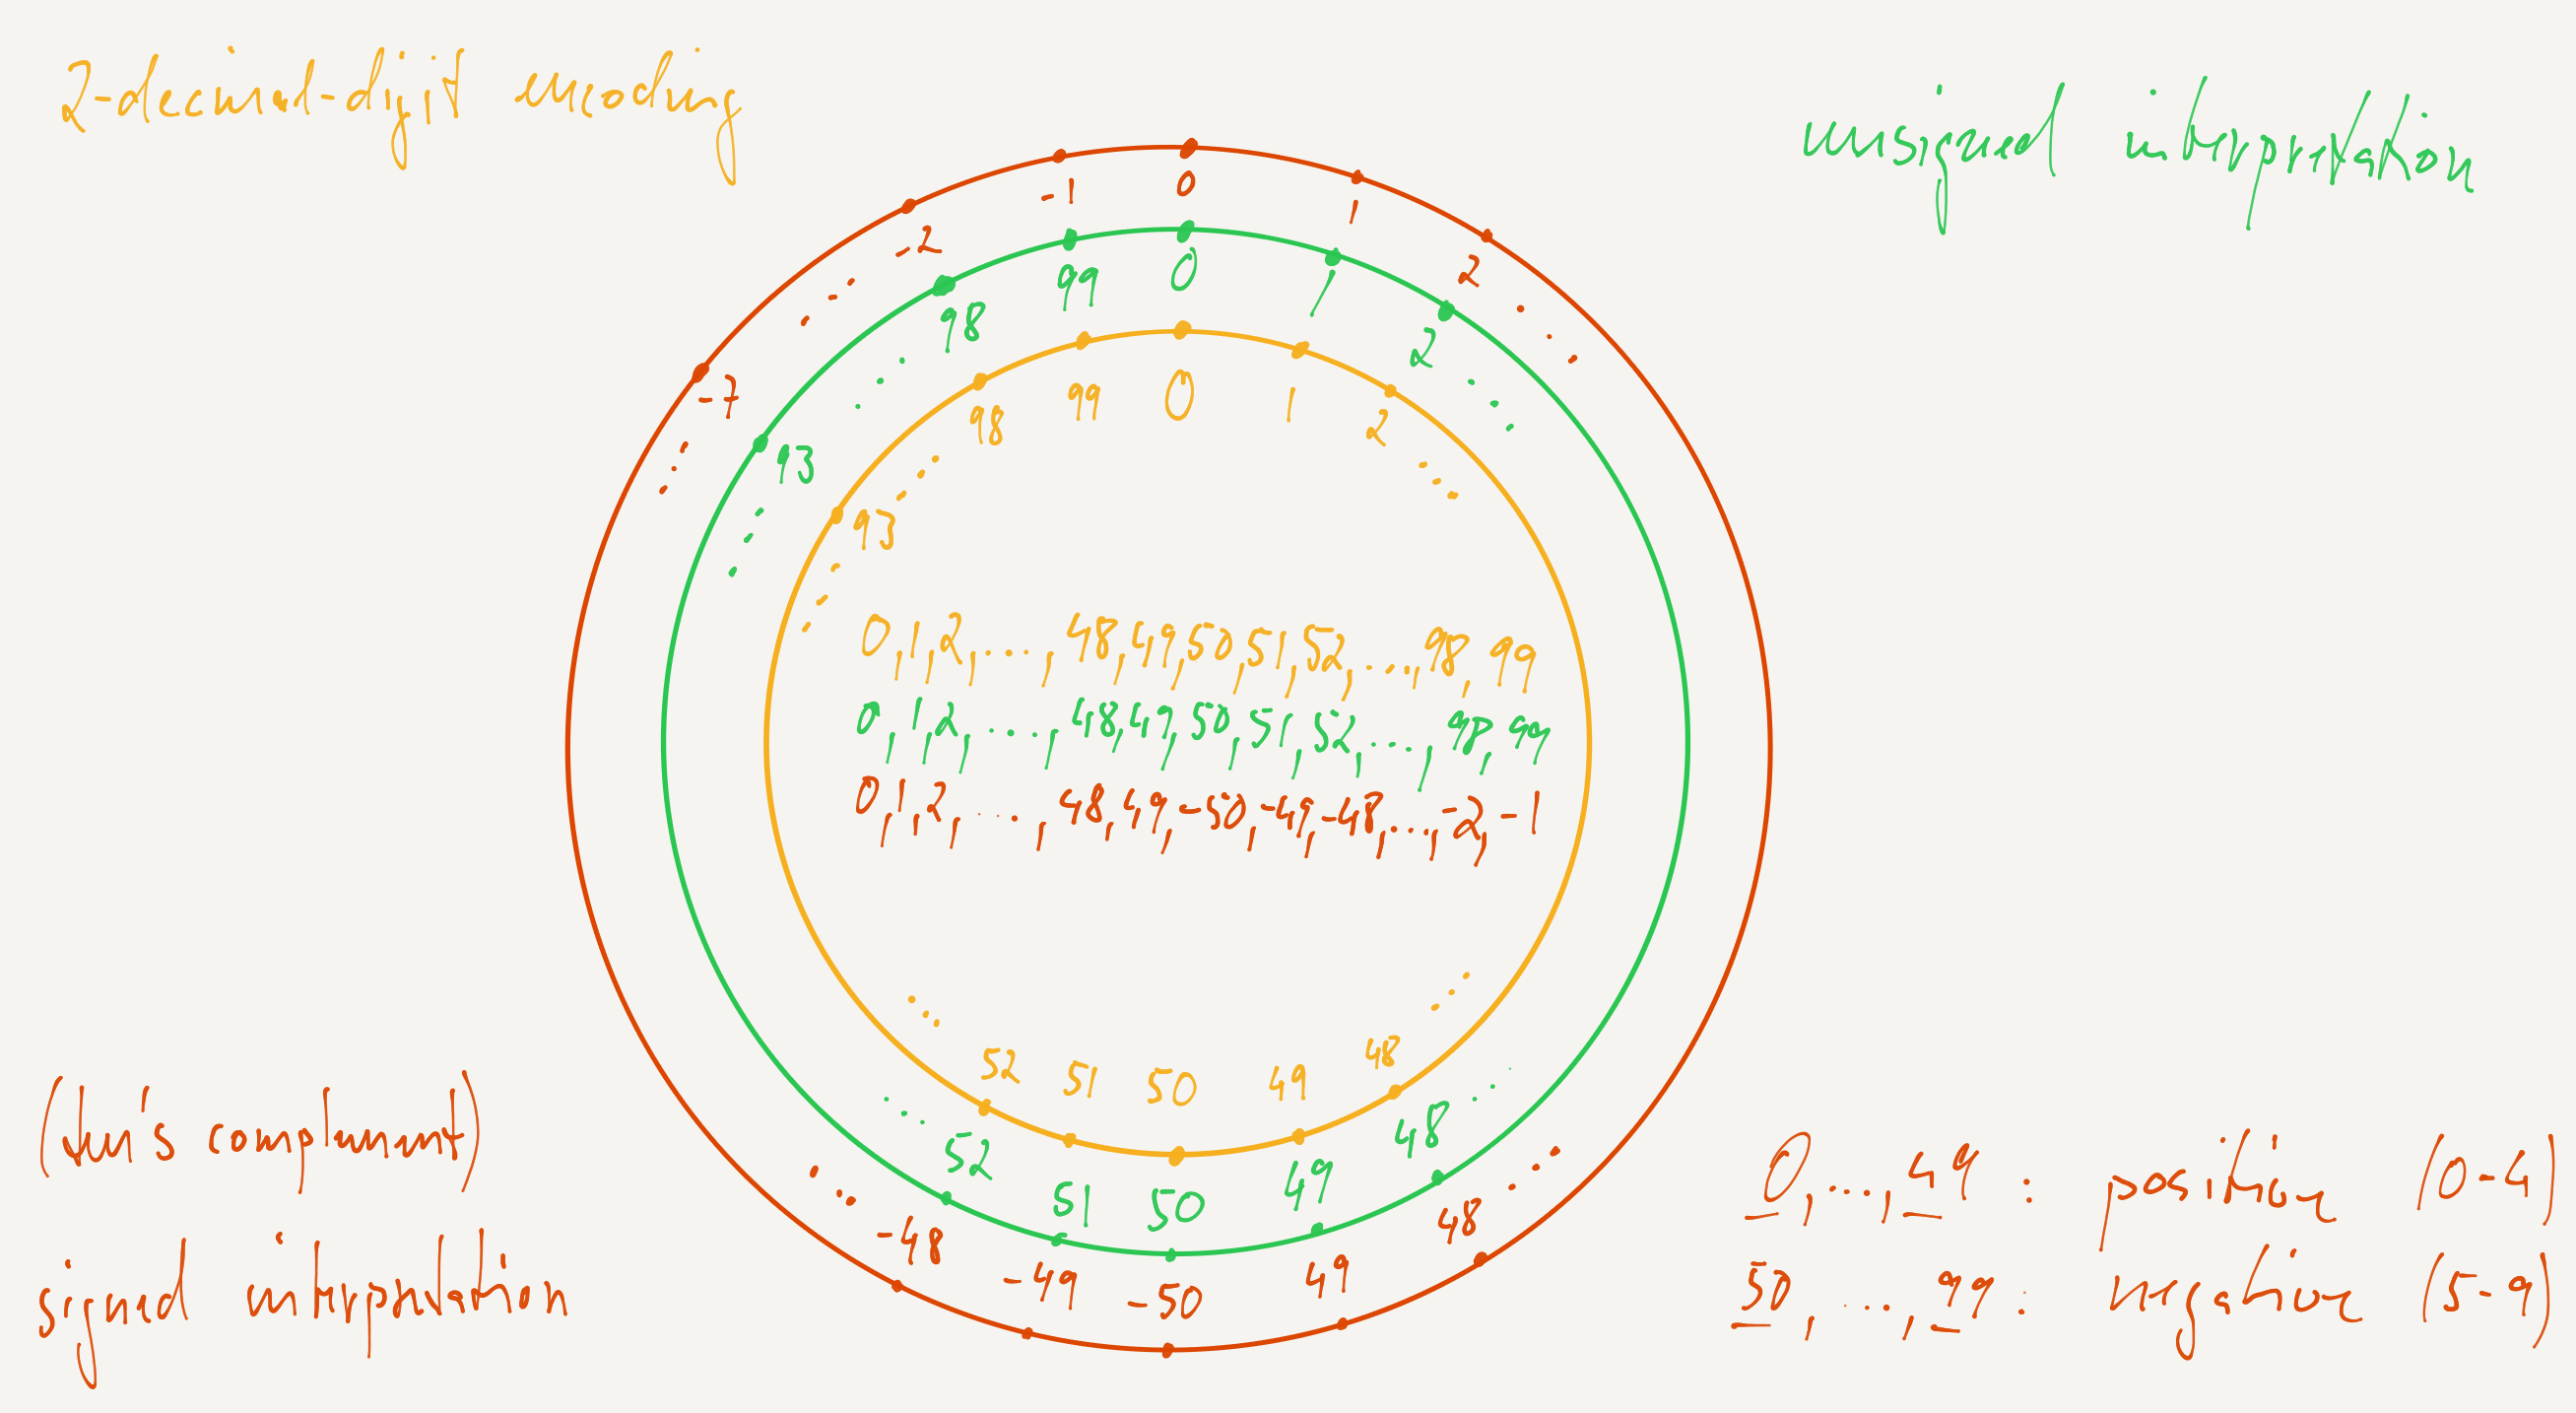 2-decimal-digit encoding
unsigned interpretation
-2 -1 0 1 2 ...
...
-7
...
98 99 0 1 2 ...
...
93
...
98 99 0 1 2 ...
...
93
...
0,1,2,...,48,49,50,51,52,...,98,99
0,1,2,...,48,49,50,51,52,...,98,99
0,1,2,...,48,49,-50,-49,-48,...,-2,-1
... 52 51 50 49 48 ...
... 52 51 50 49 48 ...
... -48 -49 -50 49 48 ...
(ten's complement)
signed interpretation
0,...,49 : positive (0-4)
50,...,99 : negative (5-9)